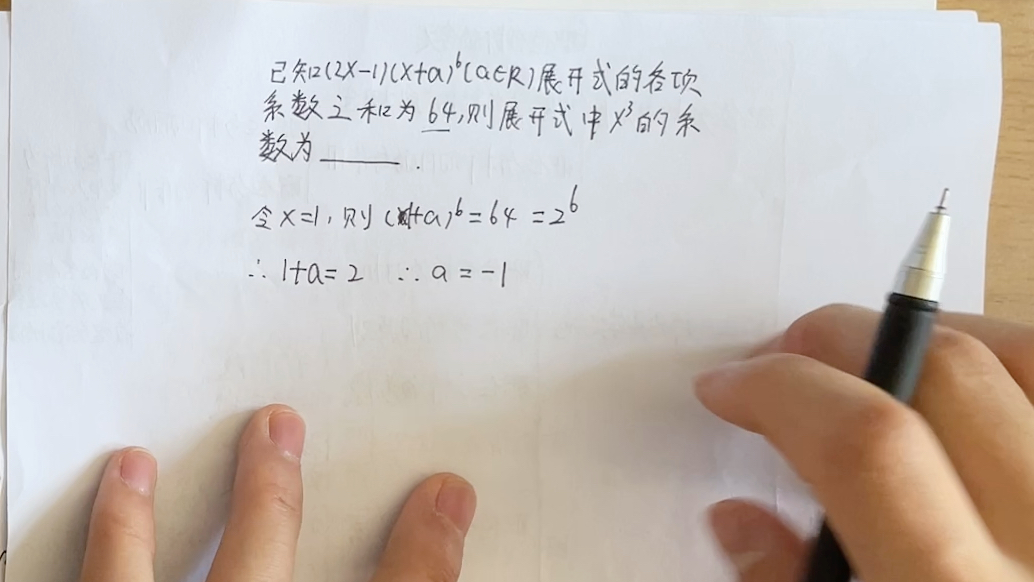 已知(2x-1)(x+a)⁶(a∈R)展开式的各项
系数之和为64,则展开式中x³的系
数为______.
令x=1,则(1+a)⁶=64=2⁶
∴1+a=2 ∴a=-1